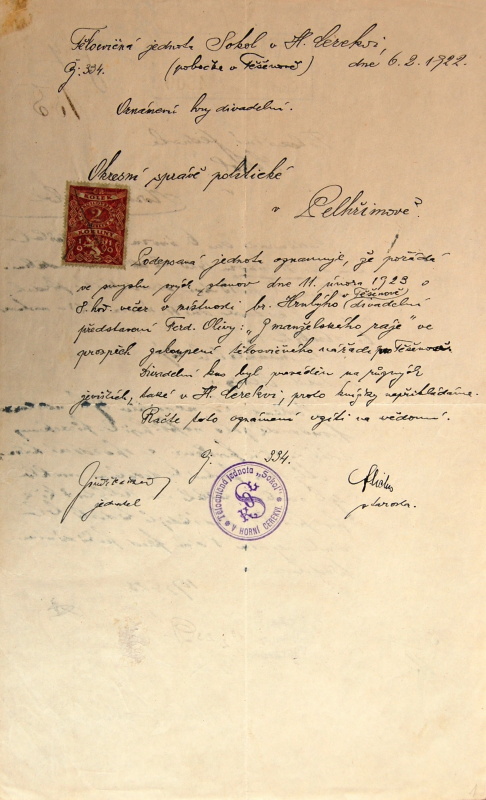 Tělocvičná jednota Sokol v H. Cerekvi,
Čj: 334. (pobočka v Těšenově) dne 6. 2. 1922.
Oznámení hry divadelní.
Okresní správě politické
v Pelhřimově.
KOLEK
2
KORUNY
Podepsaná jednota oznamuje, že pořádá
ve smyslu svých stanov dne 11. února 1923 o
8. hod. večer v místnosti br. Hrnkýho v Těšenově (divadelní
představení Ferd. Olivy: „Z manželského ráje" ve
prospěch zakoupení tělocvičného nářadí pro Těšenov.
Divadelní kus byl prováděn na různých
jevištích, také v H. Cerekvi, proto knížky nepřikládáme.
Račte toto oznámení vzíti na vědomí.
Čj: 334.
jednatel
starosta.
Tělocvičná jednota „Sokol"
V HORNÍ CEREKVI.